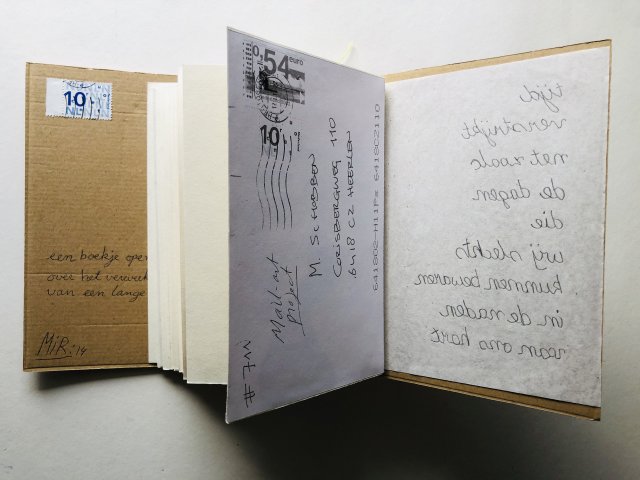 10
een boekje open
over het verwerk
van een lange
MiR. '14
54 euro
10
M. SCHOBBEN
CORISBERGWEG 110
6418 CZ HEERLEN
641802110
Mail-art
project
tijd
verstrijkt
net zoals
de dagen
die
wij slechts
kunnen bewaren
in de naden
van ons hart